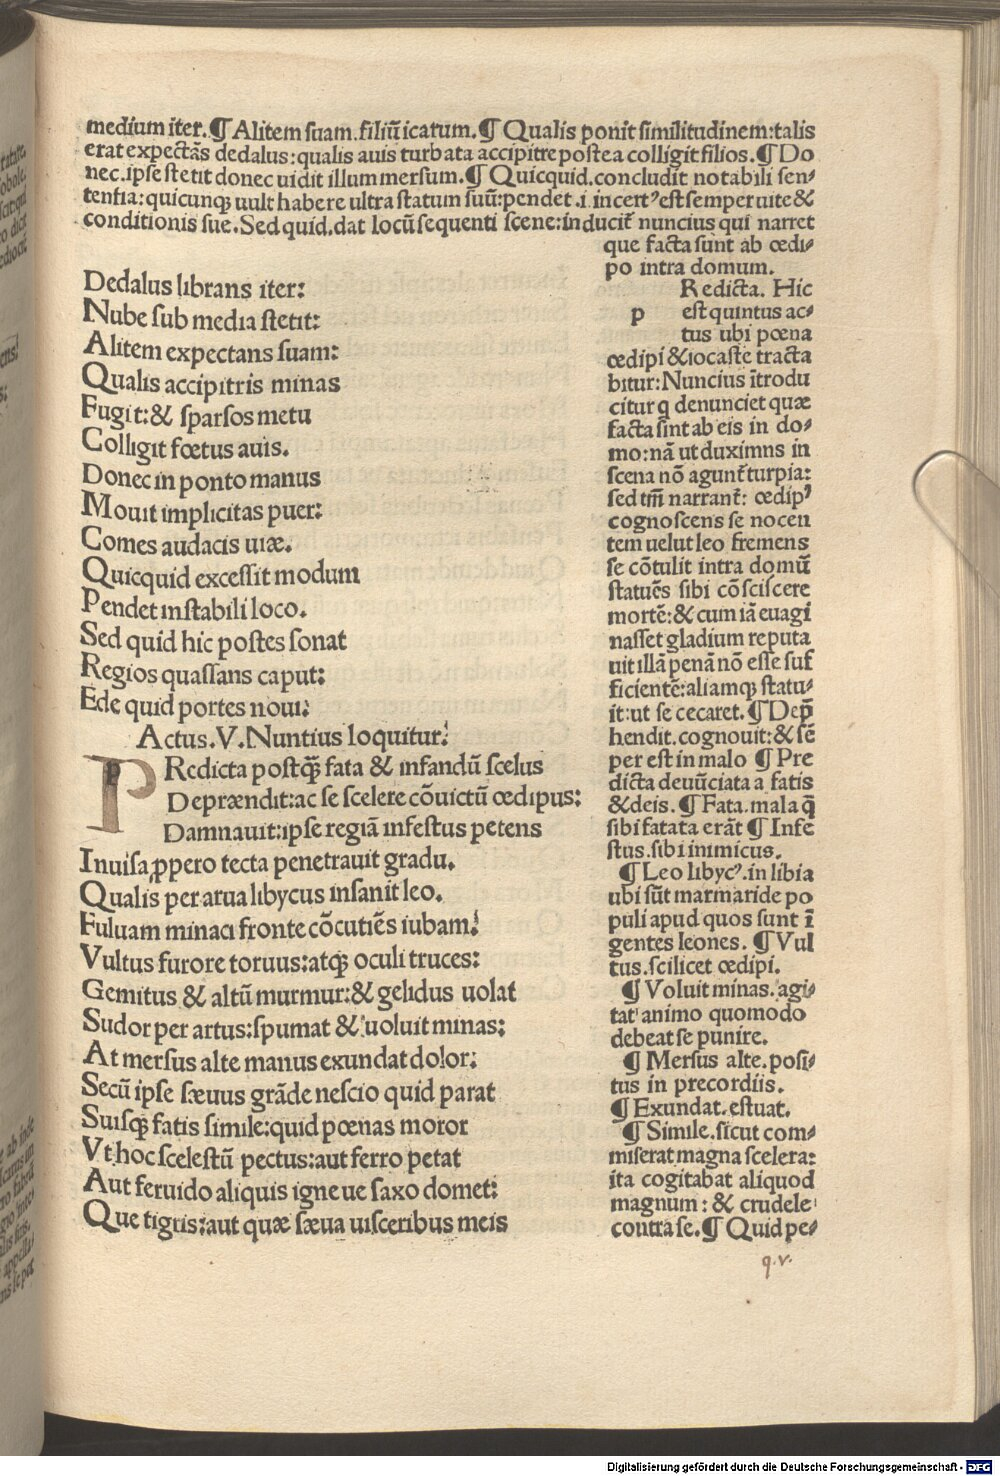 medium iter.¶ Alitem ſuam.filiū icarum.¶ Qualis ponit ſimilitudinem:talis
erat expectās dedalus:qualis auis turbata accipitre poſtea colligit filios.¶ Do
nec.ipſe ſtetit donec uidit illum merſum.¶ Quicquid.concludit notabili ſen-
tentia:quicunqꝫ uult habere ultra ſtatum ſuū:pendet .i.incertꝰ eſt ſemper uite &
conditionis ſue.Sed quid.dat locū ſequenti ſcene:inducit᷑ nuncius qui narret
que facta ſunt ab œdi⸗
po intra domum.
Dedalus librans iter:
Nube ſub media ſtetit:
Alitem expectans ſuam:
Qualis accipitris minas
Fugit:& ſparſos metu
Colligit fœtus auis.
Donec in ponto manus
Mouit implicitas puer:
Comes audacis uiæ.
Quicquid exceſſit modum
Pendet inſtabili loco.
Sed quid hic poſtes ſonat
Regios quaſſans caput:
Ede quid portes noui:
Actus.V.Nuntius loquitur.
PRedicta poſtqꝫ̄ fata & infandū ſcelus
Deprændit:ac ſe ſcelere cōuictū œdipus:
Damnauit:ipſe regiā infeſtus petens
Inuiſa ꝓpero tecta penetrauit gradu.
Qualis per arua libycus inſanit leo.
Fuluam minaci fronte cōcutiēs iubam.
Vultus furore toruus:atqꝫ oculi truces:
Gemitus & altū murmur:& gelidus uolat
Sudor per artus:ſpumat & uoluit minas:
At merſus alte manus exundat dolor:
Secū ipſe ſæuus grāde neſcio quid parat
Suiſqꝫ fatis ſimile:quid pœnas moror
Vt hoc ſceleſtū pectus:aut ferro petat
Aut feruido aliquis igne ue ſaxo domet:
Que tigris:aut quæ ſæua uiſceribus meis
Redicta. Hic
p eſt quintus ac⸗
tus ubi pœna
œdipi & iocaſte tracta
bitur:Nuncius ītrodu
citur q denunciet quæ
facta ſint ab eis in do⸗
mo:nā ut duximns in
ſcena nō agunt᷑ turpia:
ſed tm̄ narrant᷑: œdipꝰ
cognoſcens ſe nocen
tem uelut leo fremens
ſe cōtulit intra domū
ſtatuēs ſibi cōſciſcere
mortē:& cum iā euagi
naſſet gladium reputa
uit illā penā nō eſſe ſuf
ficientē:aliamqꝫ ſtatu⸗
it:ut ſe cecaret.¶ Dep̄
hendit.cognouit:& ſē
per eſt in malo ¶ Pre
dicta deuūciata a fatis
& deis.¶ Fata.mala q̄
ſibi fatata erāt ¶ Infe
ſtus.ſibi inimicus.
¶ Leo libycꝰ.in libia
ubi ſūt marmaride po
puli apud quos ſunt ī
gentes leones. ¶ Vul
tus.ſcilicet œdipi.
¶ Voluit minas.agi⸗
tat animo quomodo
debeat ſe punire.
¶ Merſus alte.poſi⸗
tus in precordiis.
¶ Exundat.eſtuat.
¶ Simile.ſicut com⸗
miſerat magna ſcelera:
ita cogitabat aliquod
magnum:& crudele
contra ſe.¶ Quid pe⸗
q.v.
Digitalisierung gefördert durch die Deutsche Forschungsgemeinschaft - DFG